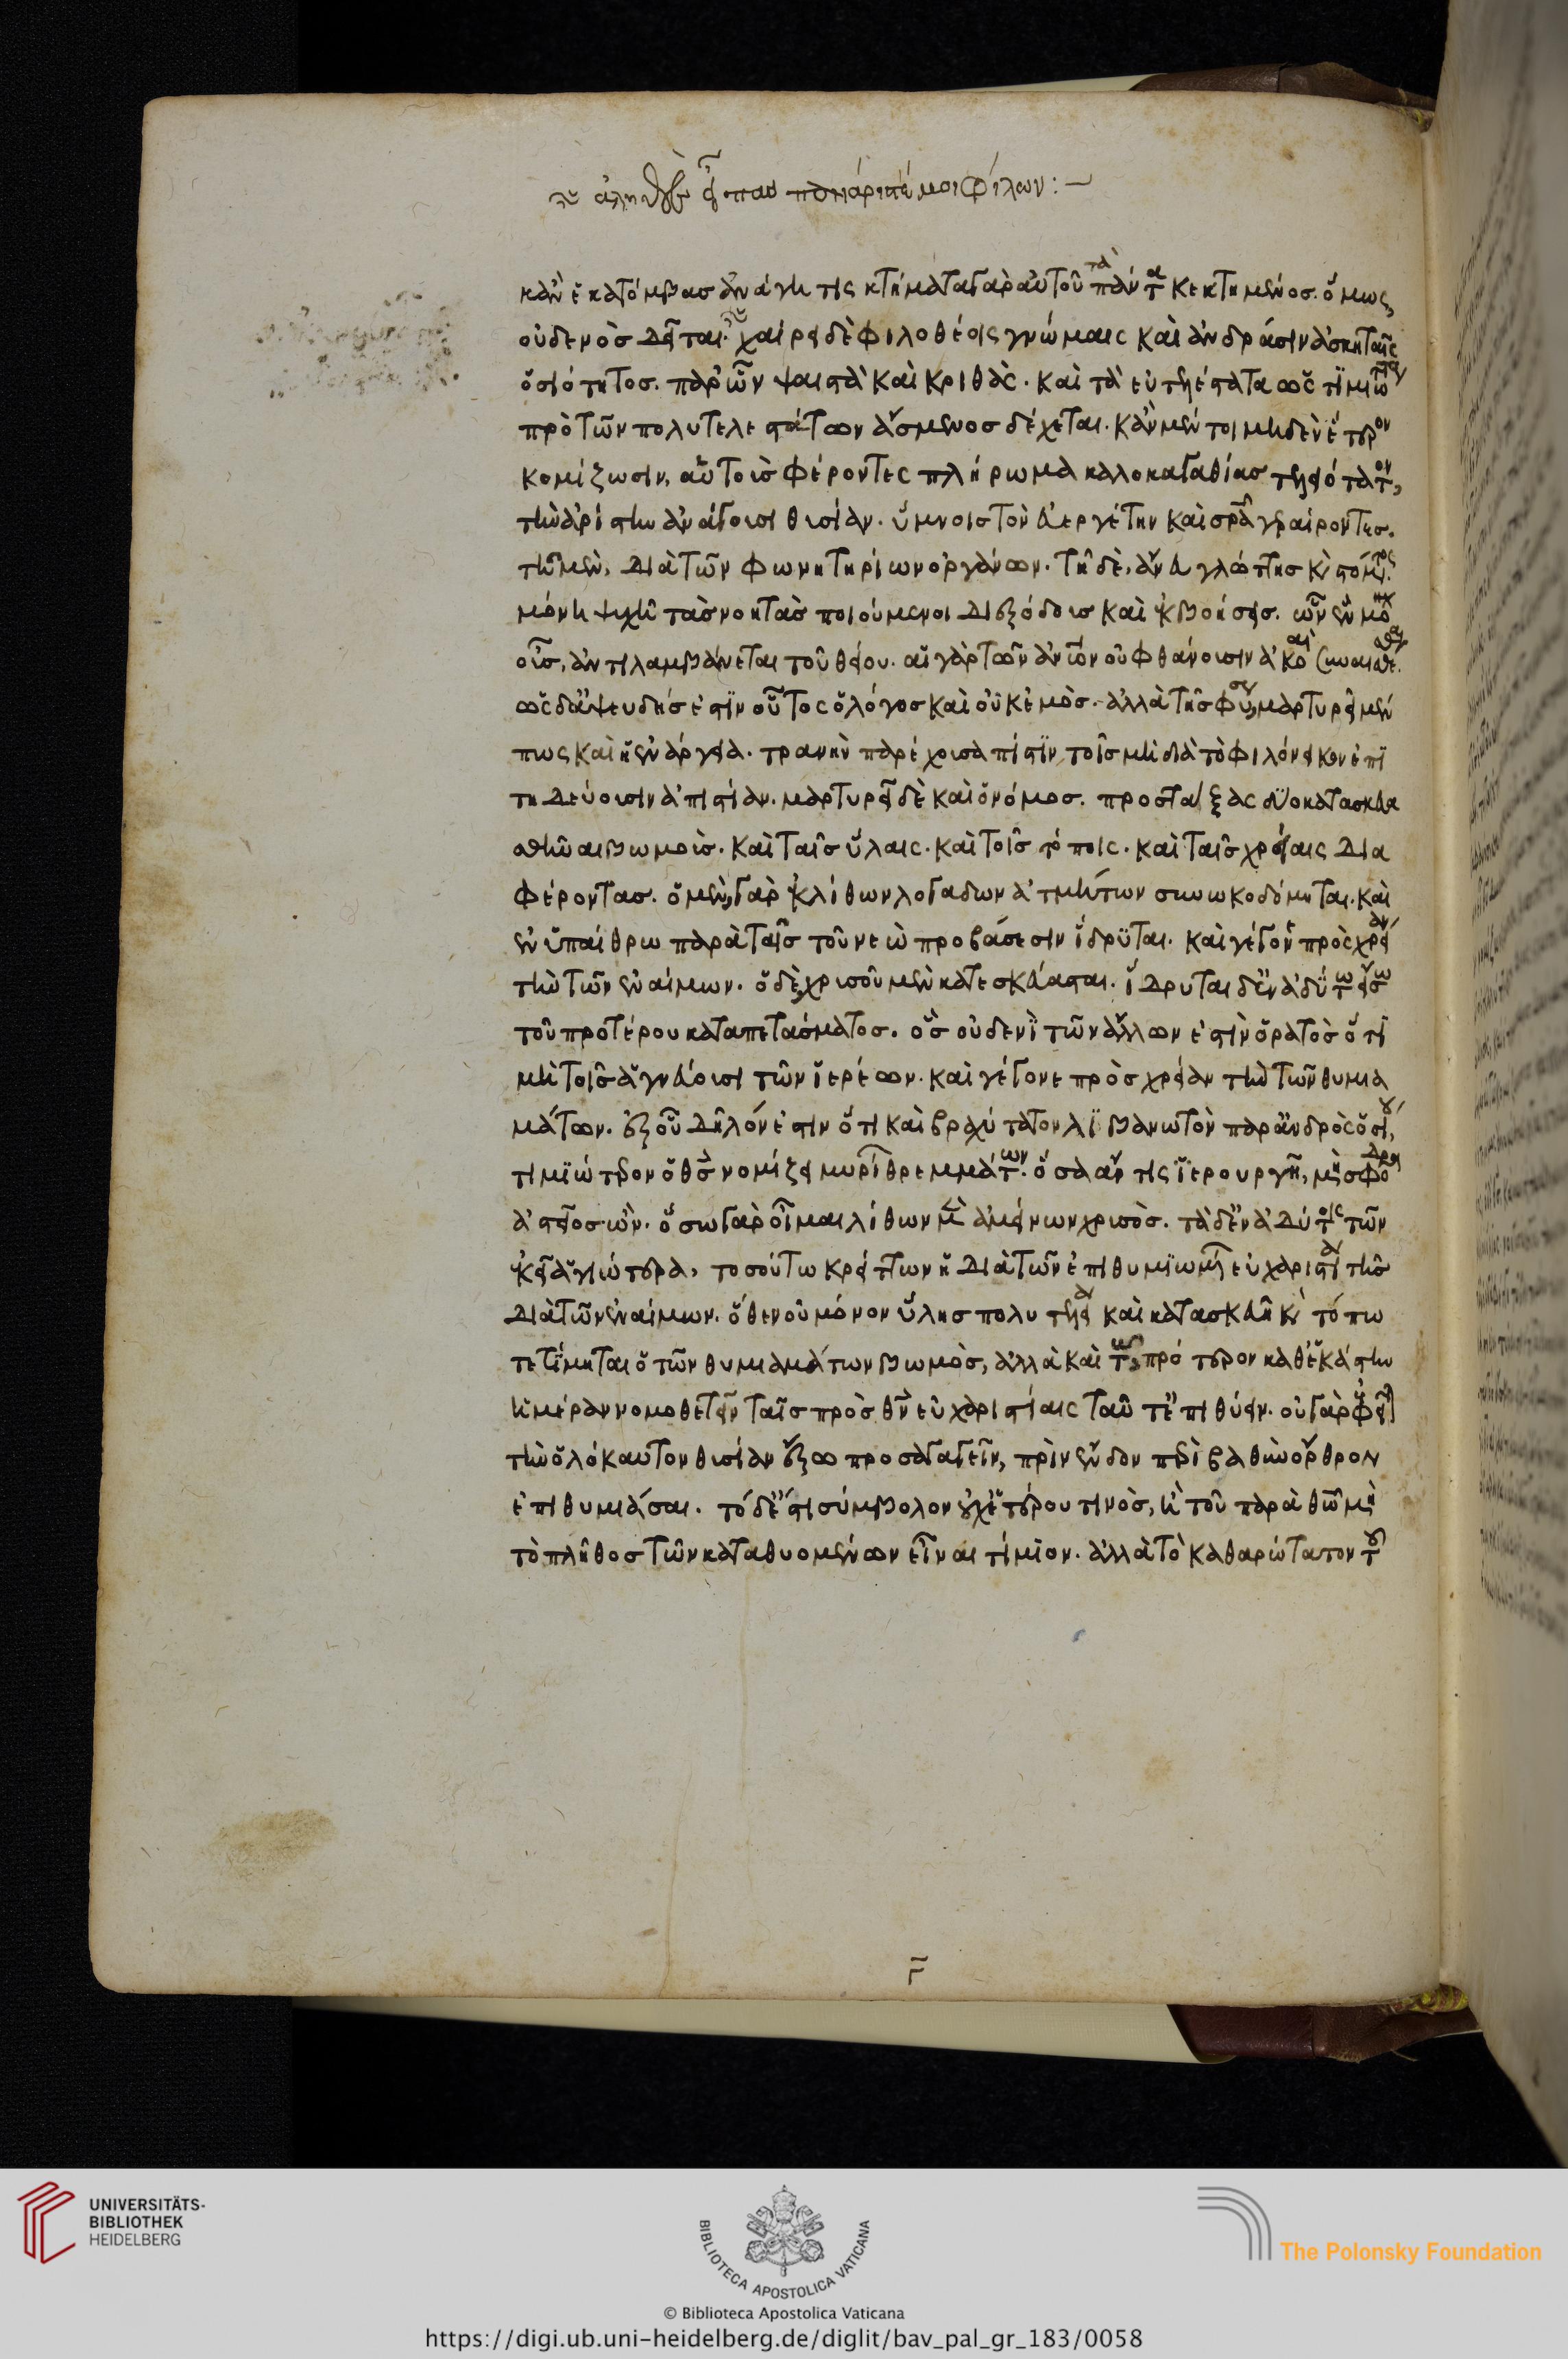 κἂν ἑκατόμβας ἀνάγῃ τις κτήματα γὰρ αὐτοῦ τὰ πάντα κεκτημένος. ὅμως
οὐδενὸς δεῖται. χαίρει δὲ φιλοθέοις γνώμαις καὶ ἀνδράσιν ἀσκηταῖς
ὁσιότητος. παρ' ὧν ψαιστὰ καὶ κριθὰς. καὶ τὰ εὐτελέστατα ὡς τιμιώτατα
πρὸ τῶν πολυτελεστάτων ἄσμενος δέχεται. κἂν μέντοι μηδὲν ἕτερον
κομίζωσιν, αὑτοὺς φέροντες πλήρωμα καλοκαγαθίας τελειότατον,
τὴν ἀρίστην ἀνάγουσι θυσίαν. ὕμνοις τὸν εὐεργέτην καὶ σωτῆρα γεραίροντες.
τῇ μὲν, διὰ τῶν φωνητηρίων ὀργάνων. τῇ δὲ, ἄνευ γλώττης καὶ στόματος.
μόνῃ ψυχῇ τὰς νοητὰς ποιούμενοι διεξόδους καὶ ἐκβοήσεις. ὧν ἓν μόνον
οὖς, ἀντιλαμβάνεται τοῦ θείου. αἱ γὰρ τῶν ἀνθρώπων οὐ φθάνουσιν ἀκοαὶ συναισθέσθαι.
ὡς δ' ἀψευδής ἐστιν οὗτος ὁ λόγος καὶ οὐκ ἐμὸς. ἀλλὰ τῆς φύσεως, μαρτυρεῖ μέν
πως καὶ ἡ ἐνάργεια. τρανὴν παρέχουσα πίστιν τοῖς μὴ διὰ τὸ φιλόνεικον ἐπι
τηδεύουσιν ἀπιστίαν. μαρτυρεῖ δὲ καὶ ὁ νόμος. προστάξας δύο κατασκευα
σθῆναι βωμοὺς. καὶ ταῖς ὕλαις. καὶ τοῖς τόποις. καὶ ταῖς χρείαις δια
φέροντας. ὁ μὲν γὰρ ἐκ λίθων λογάδων ἀτμήτων συνῳκοδόμηται. καὶ
ἐν ὑπαίθρω παρὰ ταῖς τοῦ νεὼ προβάσεσιν ἵδρυται. καὶ γέγονε πρὸς χρείαν
τὴν τῶν ἐναίμων. ὁ δὲ χρυσοῦ μὲν κατεσκεύασται. ἵδρυται δ' ἐν ἀδύτω εἴσω
τοῦ προτέρου καταπετάσματος. ὃς οὐδενὶ τῶν ἄλλων ἐστὶν ὁρατὸς ὅτι
μὴ τοῖς ἁγνεύουσι τῶν ἱερέων. καὶ γέγονε πρὸς χρείαν τὴν τῶν θυμια
μάτων. ἐξ οὗ δῆλόν ἐστιν ὅτι καὶ βραχύτατον λιβανωτὸν παρ' ἀνδρὸς ὁσίου,
τιμιώτερον ὁ θεὸς νομίζει μυρία θρεμμάτων. ὅσα ἄν τις ἱερουργῇ, μὴ σφόδρα
ἀστεῖος ὢν. ὅσω γὰρ οἶμαι λίθων μὲν ἀμείνων χρυσὸς. τὰ δ' ἐν ἀδύτοις τῶν
ἐκτὸς ἁγιώτερα, τοσούτω κρείττων ἡ διὰ τῶν ἐπιθυμιωμένων εὐχαριστία τῆς
διὰ τῶν ἐναίμων. ὅθεν οὐ μόνον ὕλης πολυτελεία καὶ κατασκευῇ καὶ τόπω
τετίμηται ὁ τῶν θυμιαμάτων βωμὸς, ἀλλὰ καὶ τῶ πρότερον καθ' ἑκάστην
ἡμέραν νομοθετεῖν ταῖς πρὸς θεὸν εὐχαριστίαις ταῦτ' ἐπιθύειν. οὐ γὰρ ἐφεῖται
τὴν ὁλόκαυτον θυσίαν ἔξω προσαγαγεῖν, πρὶν ἔνδον περὶ βαθὺν ὄρθρον
ἐπιθυμιάσαι. τὸ δ' ἔστι σύμβολον οὐχ ἑτέρου τινὸς, ἢ τοῦ παρὰ θεῶ μὴ
τὸ πλῆθος τῶν καταθυομένων εἶναι τίμιον. ἀλλὰ τὸ καθαρώτατον τοῦ
UNIVERSITÄTS-
BIBLIOTHEK
HEIDELBERG
BIBLIOTECA APOSTOLICA VATICANA
The Polonsky Foundation
© Biblioteca Apostolica Vaticana
https://digi.ub.uni-heidelberg.de/diglit/bav_pal_gr_183/0058